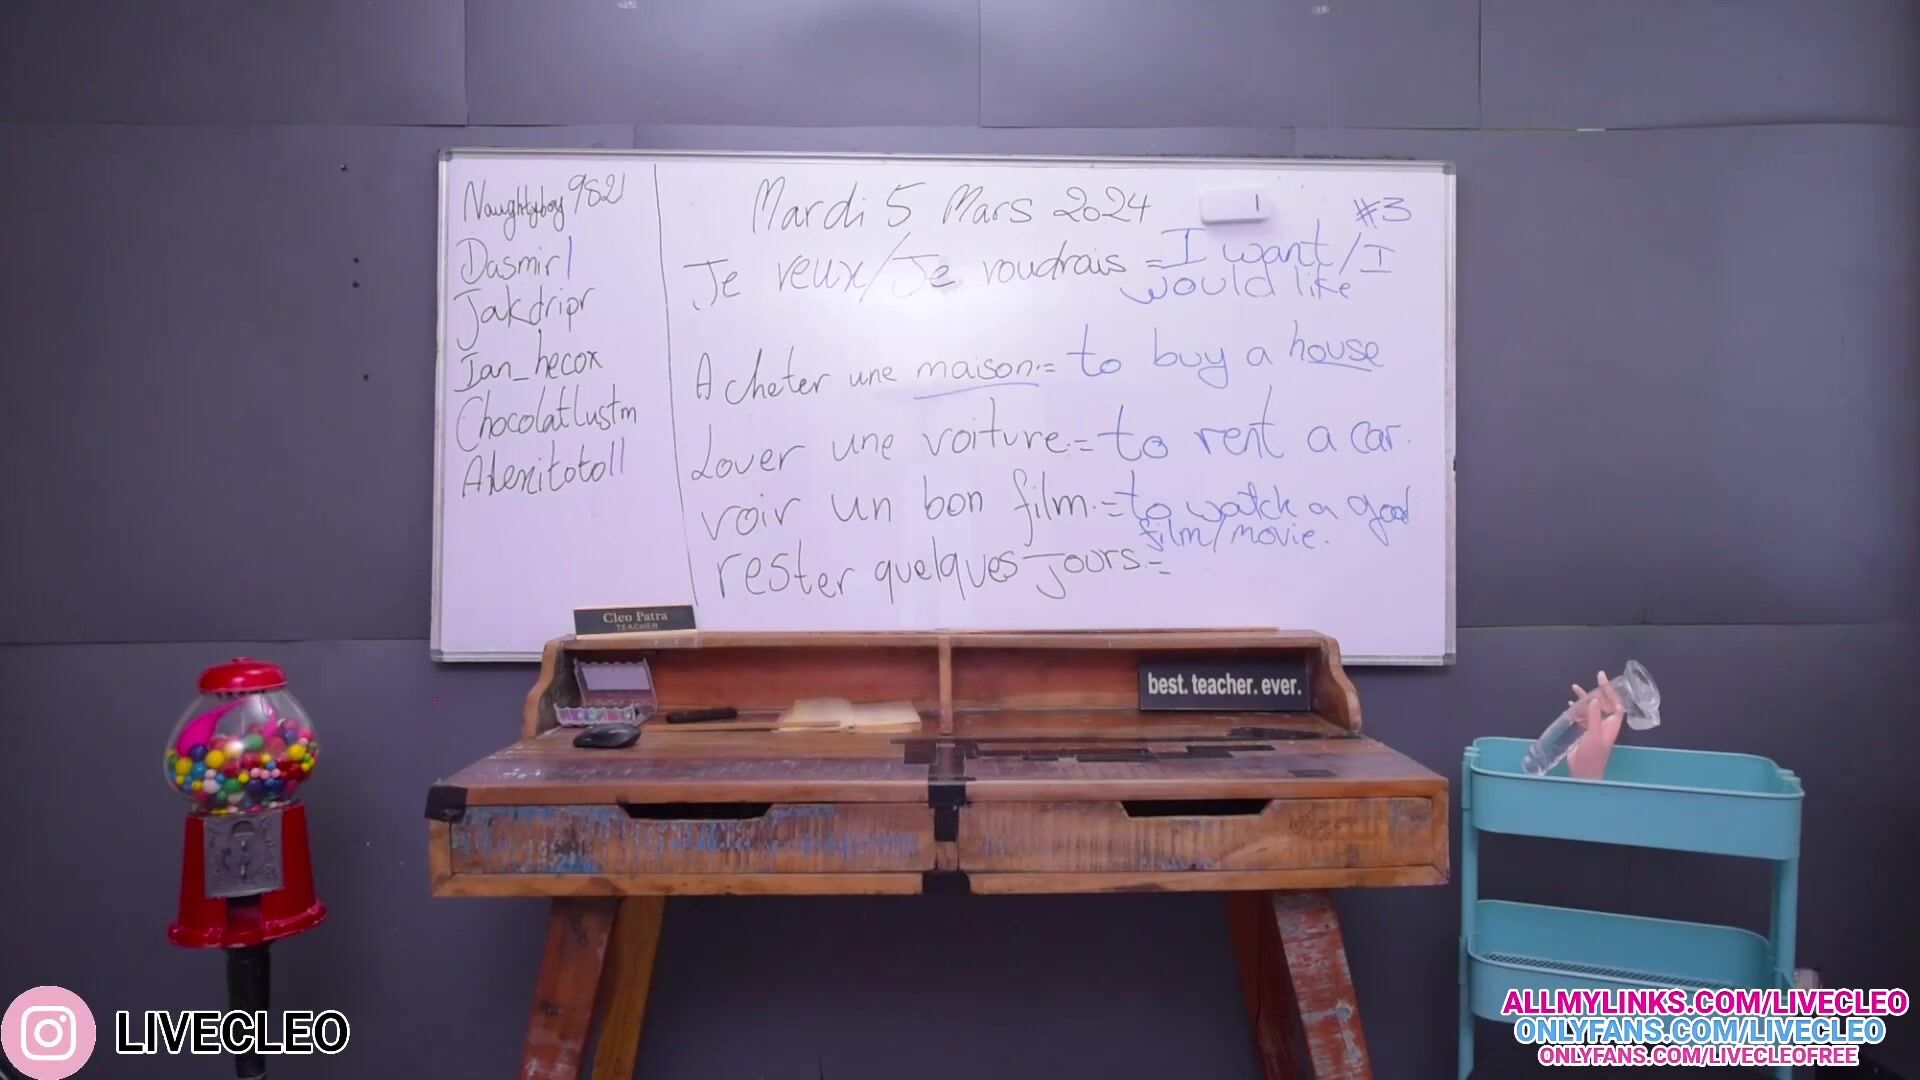 Naughtyboy9821
Dasmir1
Jakdripr
Ian_hecox
Chocolatlustm
Alexitoto11
Mardi 5 Mars 2024
#3
Je veux/Je voudrais = I want/I
would like
Acheter une maison.= to buy a house
Louer une voiture.= to rent a car.
voir un bon film.= to watch a good
film/movie.
rester quelques jours.=
Cleo Patra
TEACHER
best. teacher. ever.
LIVECLEO
ALLMYLINKS.COM/LIVECLEO
ONLYFANS.COM/LIVECLEO
ONLYFANS.COM/LIVECLEOFREE